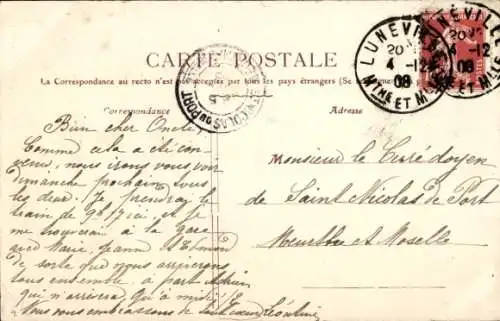 CARTE POSTALE
La Correspondance au recto n'est pas acceptée par tous les pays étrangers (Se
Correspondance
Adresse
LUNEVILLE
20
4 -12
08
MTHE ET M
NÉVILLE
20
4 -12
08
ST NICOLAS DU PORT
Bien cher Oncle
Comme cela a été con-
venu, nous irons vous voir
dimanche prochain tous
les deux. Je prendrai le
train de 9h 17 ici, et je
me trouverai à la gare
avec Marie Jeanne
de sorte que nous arriverons
tous ensemble à part Adrien
qui n'arrivera, qu'à midi
Nous vous embrassons de tout cœur Léontine
Monsieur le Curé doyen
de Saint Nicolas de Port
Meurthe et Moselle